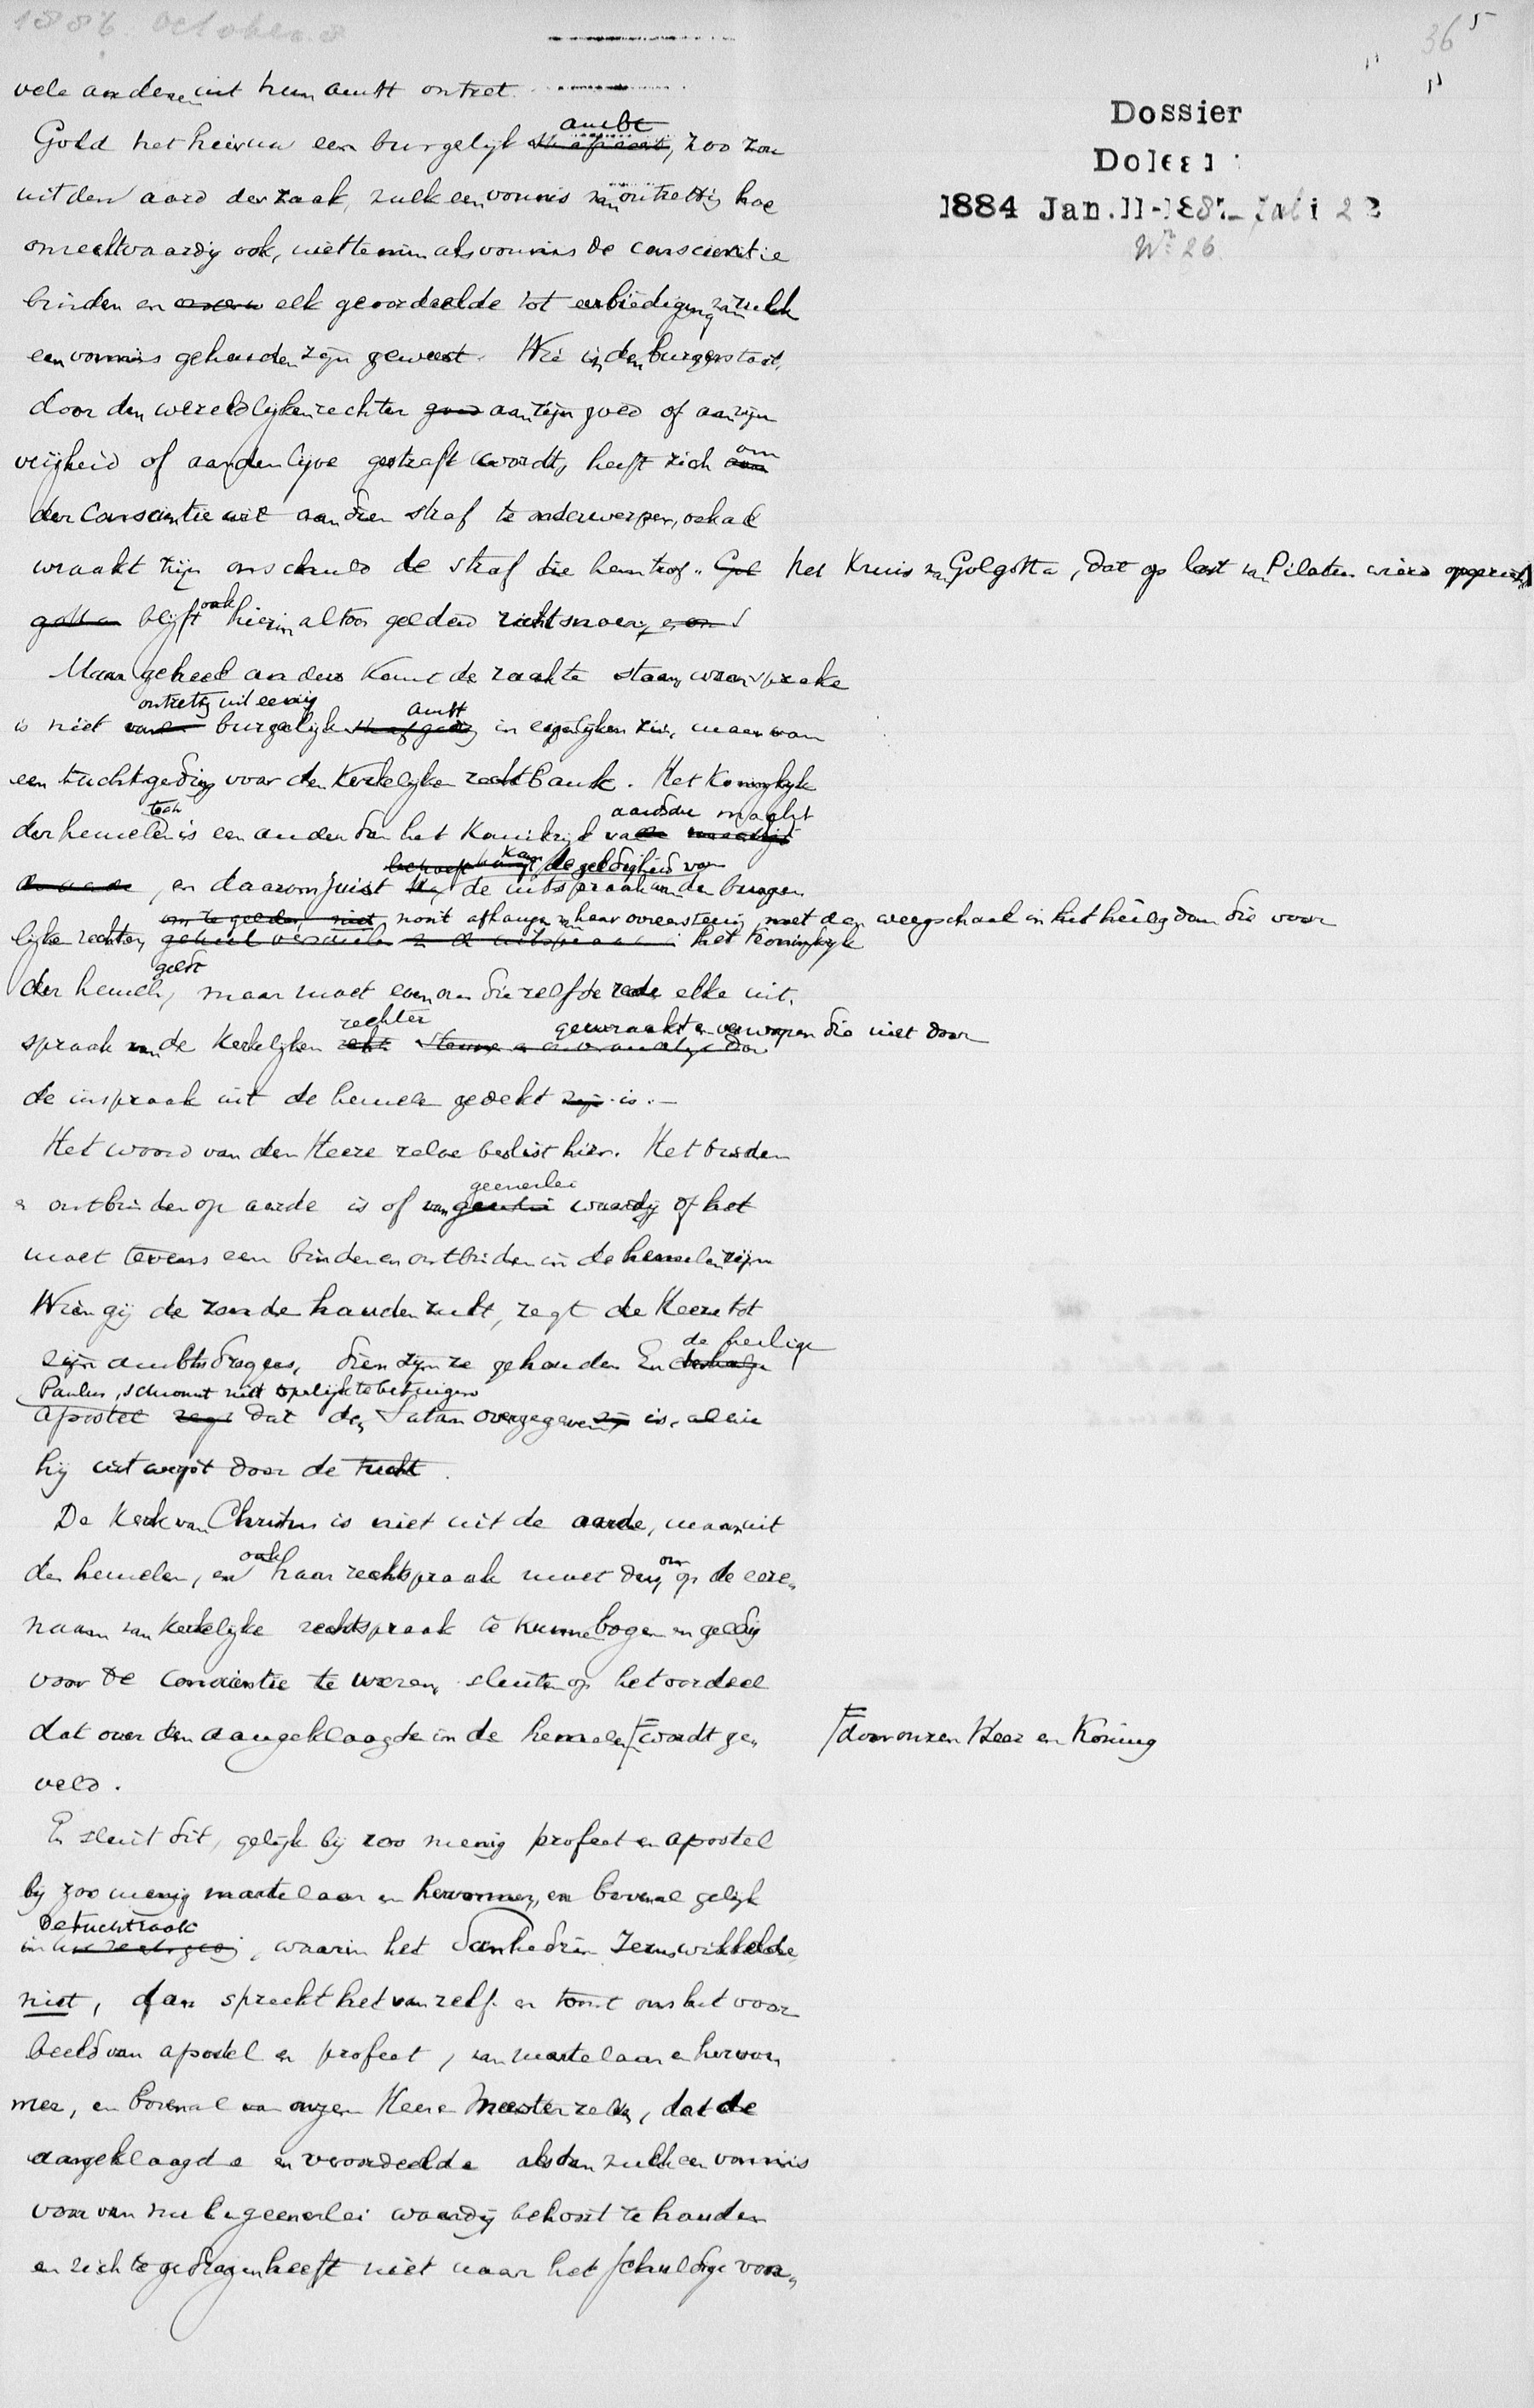 1886. October. 8
365
vele anderen uit hun ambt ontzet.
Dossier
Doleer
1884 Jan. 11-1887 Juli 22
No. 26
ambt
Gold het hier nu een burgelijk strafproces, zoo zou
uit den aard der zaak, zulk een vonnis van ontzetting hoe
onrechtvaardig ook, niettemin als vonnis de conscientie
binden en elk geoordeelde tot eerbiediging van zulk
een vonnis gehouden zijn geweest. Wie in den burgerstaat,
door den wereldlijken rechter goed aan zijn goed of aan zijn
vrijheid of aan den lijve gestraft wordt, heeft zich om
der Conscientie wil aan dien straf te onderwerpen, ook al
wraakt zijn onschuld de straf die hem trof. Gol het Kruis van Golgotha, dat op last van Pilatus wierd opgericht
gotha blijft ook hierin altoos geldend richtsnoer
Maar geheel anders komt de zaak te staan, waar sprake
ontzetting uit eenig ambt
is niet van burgelijk strafgeding in eigenlijken zin, maar van
een tuchtgeding voor de Kerkelijke rechtbank. Het Koninkrijk
toch aardsche macht
der hemelen is een ander dan het Koninkrijk van
behoeft kan de geldigheid van
de aarde, en daarom juist de uitspraak van den burger
om te gelden, niet, nooit afhangen van haar overeenstemming met den weegschaal in het heiligdom die voor
lijke rechter, geheel het Koninkrijk
geldt
der hemelen, maar moet even om die zelfde rede elke uit-
rechter gewraakt en verworpen die niet door
spraak van de Kerkelijken
de inspraak uit de hemelen gedekt zijn is.—
Het woord van den Heere zelve beslist hier. Het binden
geenerlei
en ontbinden op aarde is of van geenerlei waardij of het
moet tevens een binden en ontbinden in de hemelen zijn
Wien gij de zonde houden zult, zegt de Heere tot
de heilige
zijn ambtsdragers, dien zijn ze gehouden En
Paulus, schroomt niet openlijk te betuigen
apostel zegt dat den Satan overgegeven is, al wie
hij uitwerpt door de tucht.
De Kerk van Christus is niet uit de aarde, maar uit
ook om
den hemelen, en haar rechtspraak moet dus, op de eere-
naam van Kerkelijke rechtspraak te kunnen bogen en geldig
voor de conscientie te wezen, sluiten op het oordeel
dat over den aangeklaagde in de hemelen wordt ge-
door onzen Heer en Koning
veld.
En sluit dit, gelijk bij zoo menig profeet en apostel
bij zoo menig martelaar en hervormer, en bovenal gelijk
de tuchtzaak
in het rechtsgeding, waarin het Sanhedrin Jezus wikkelde
niet, dan spreekt het van zelf en toont ons het voor
beeld van apostel en profeet, van martelaar en hervor-
mer, en bovenal van onzen Heere Meester zelven, dat de
aangeklaagde en veroordeelde alsdan zulk een vonnis
voor van nul en geenerlei waardij behoort te houden
en zich te gedragen heeft niet naar het schuldige von-